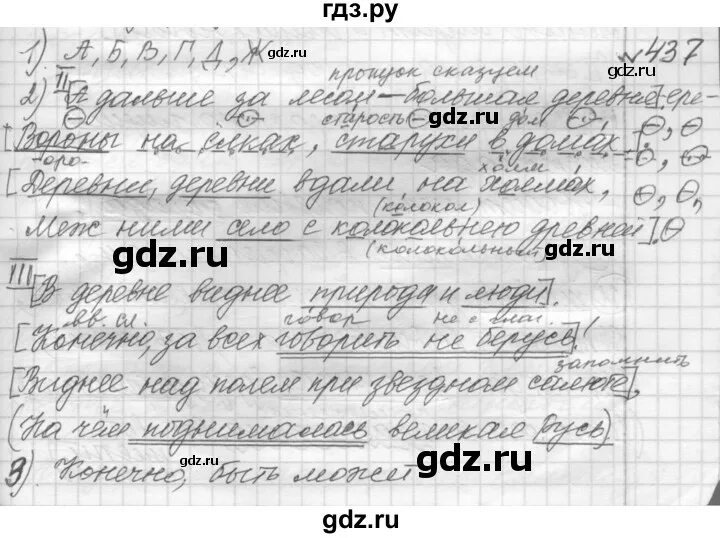 гдз.ру
1) А, Б, В, Г, Д, Ж
№ 437
пропуск сказуем
2) II [А дальше за лесом – большая деревня].
старость дом
[Вороны на ёлках, старухи в домах.]
холм
[Деревни, деревни вдали на холмах,
(колокол)
Меж ними село с колокольнею древней].
(колокольный)
gdz.ru gdz.ru
III [В деревне виднее природа и люди].
вв. сл. говор не с глаг.
[Конечно, за всех говорить не берусь]!
запомнить
[Виднее над полем при звездном салюте],
(На чём поднималась великая Русь)
gdz.ru
3) Конечно, быть может
gdz.ru